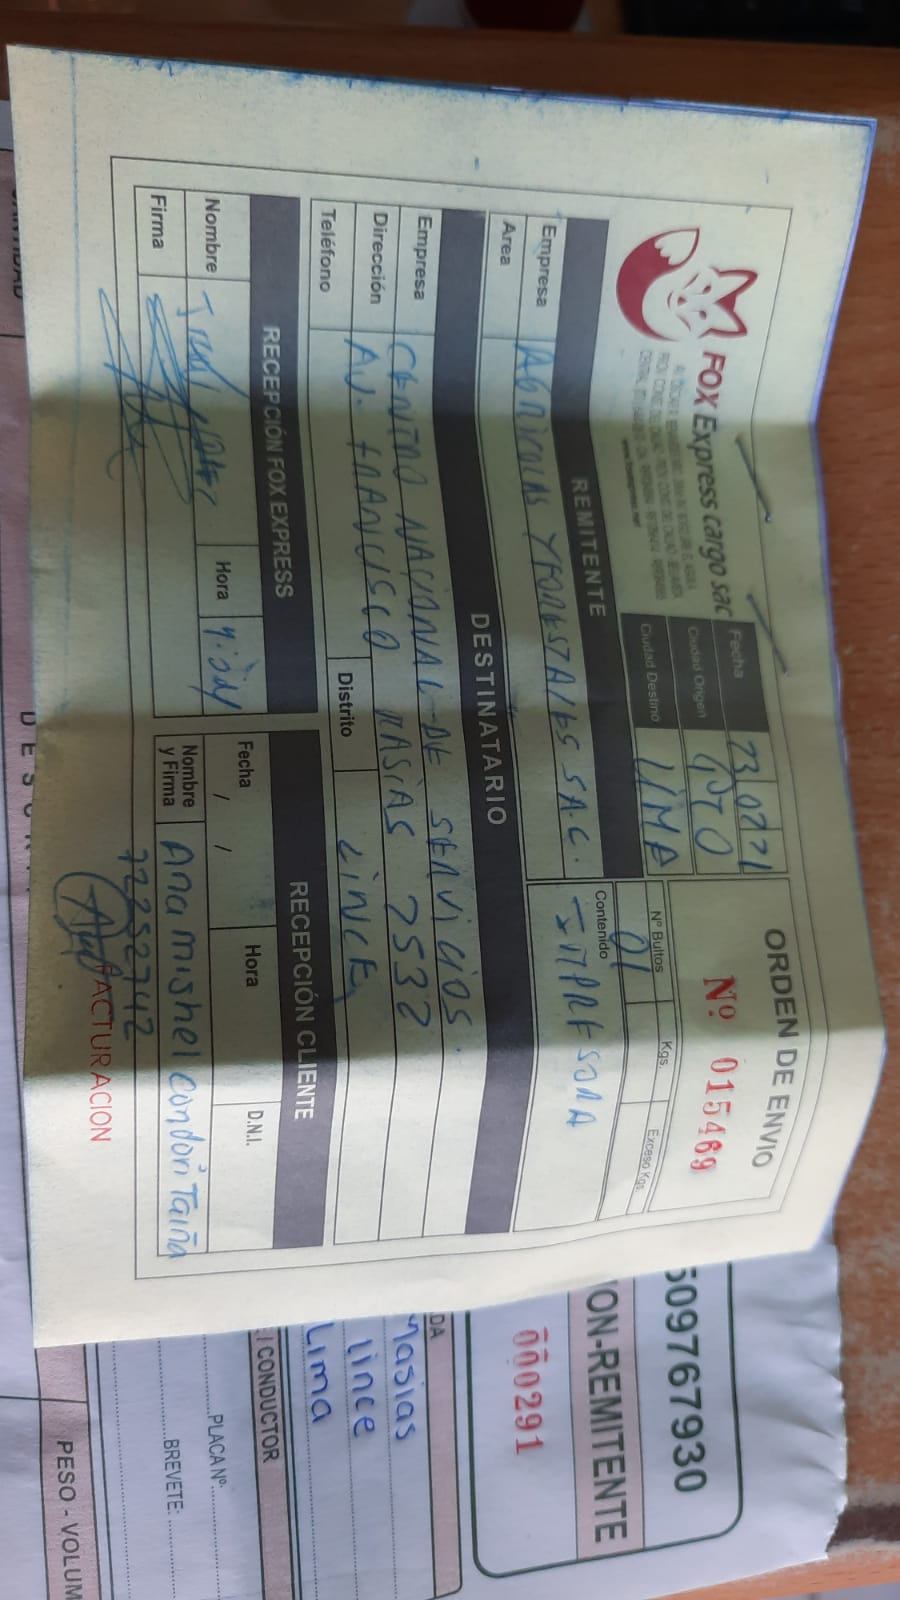 FOX Express cargo sac
www.foxexpress.net
Fecha
Ciudad Origen
Ciudad Destino LIMA
ORDEN DE ENVIO
Nº 015469
Nº Bultos Kgs. Exceso Kgs.
01
REMITENTE
Contenido
IMPRESORA
Empresa AGRICOLAS Y FORESTALES S.A.C.
Area
DESTINATARIO
Empresa CENTRO NACIONAL DE SERVICIOS.
Dirección AV. FRANCISCO MASIAS 2532
Teléfono Distrito LINCE
RECEPCIÓN FOX EXPRESS
Nombre Hora
Firma
RECEPCIÓN CLIENTE
Fecha / / Hora D.N.I.
Nombre y Firma Ana mishel condori Taiña
72252742
FACTURACION
609767930
ON-REMITENTE
000291
DA
Masias
lince
Lima
CONDUCTOR
PLACA Nº:
BREVETE:
PESO - VOLUM